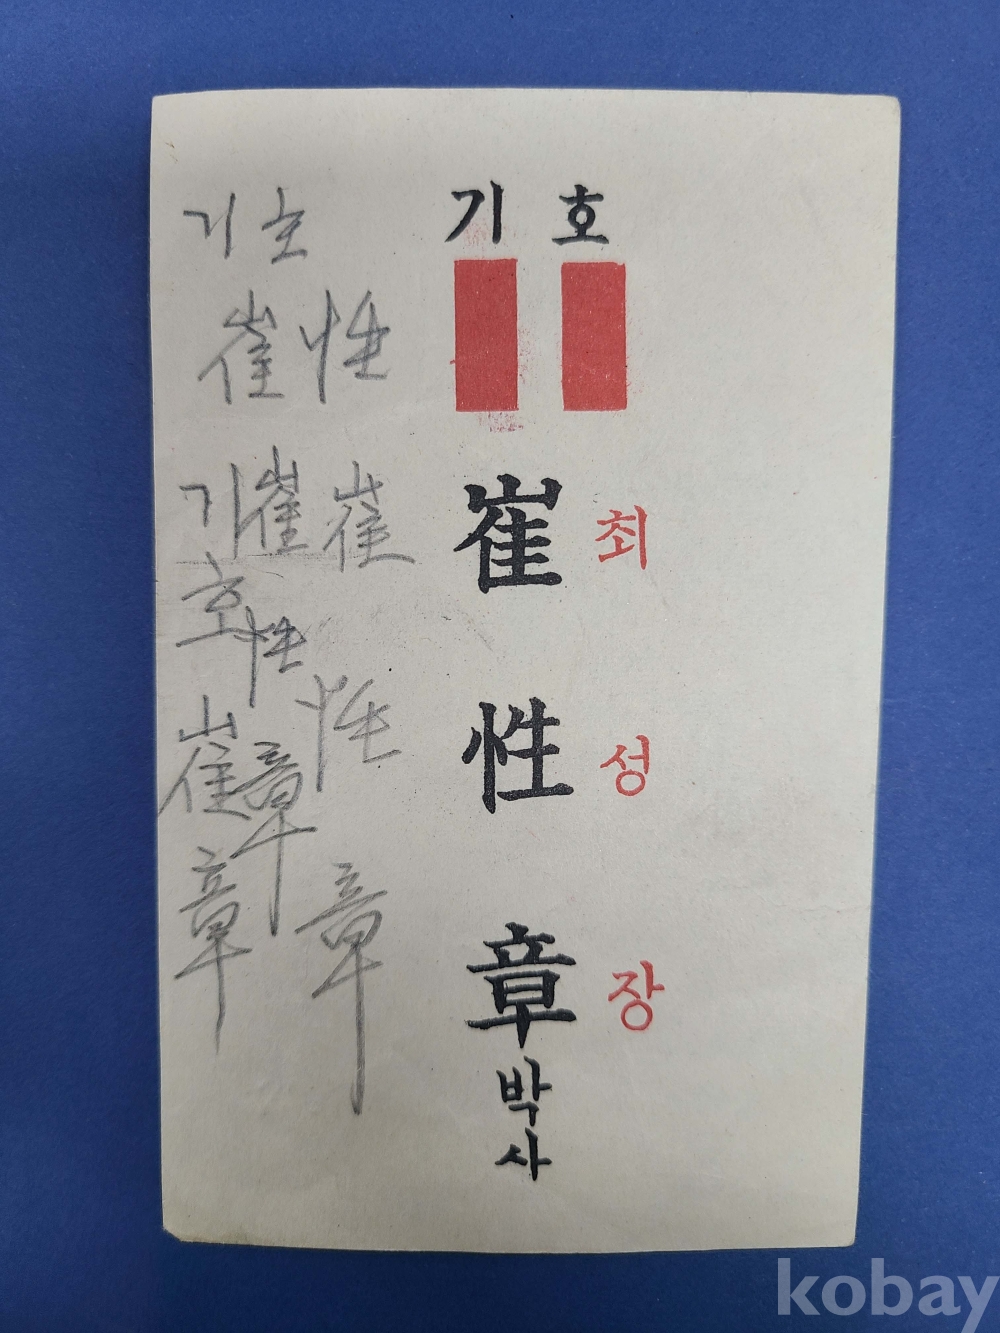 기호
崔 최
性 성
章 장
박사
기호
崔性
기호崔章
崔性章
崔性章
kobay